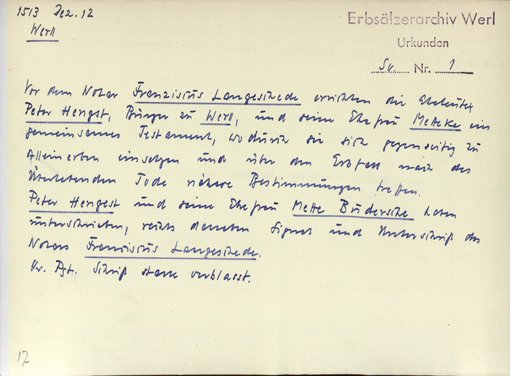 1513 Dez. 12
Werl
Erbsälzerarchiv Werl
Urkunden
Sv. Nr. 1
Vor dem Notar Franziscus Langeschede errichten die Eheleute
Peter Hengst, Bürger zu Werl, und seine Ehefrau Metteke ein
gemeinsames Testament, wodurch sie sich gegenseitig zu
Alleinerben einsetzen und über den Erbfall nach des
Überlebenden Tode nähere Bestimmungen treffen.
Peter Hengest und seine Ehefrau Mette Büdersche haben
unterschrieben, rechts daneben Signet und Unterschrift des
Notars Franziscus Langeschede.
Or. Pgt. Schrift stark verblasst.
17